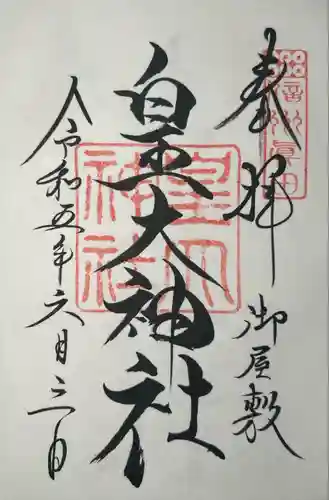 奉拝
御屋敷
皇大神社
令和五年六月三日
皇大
神社